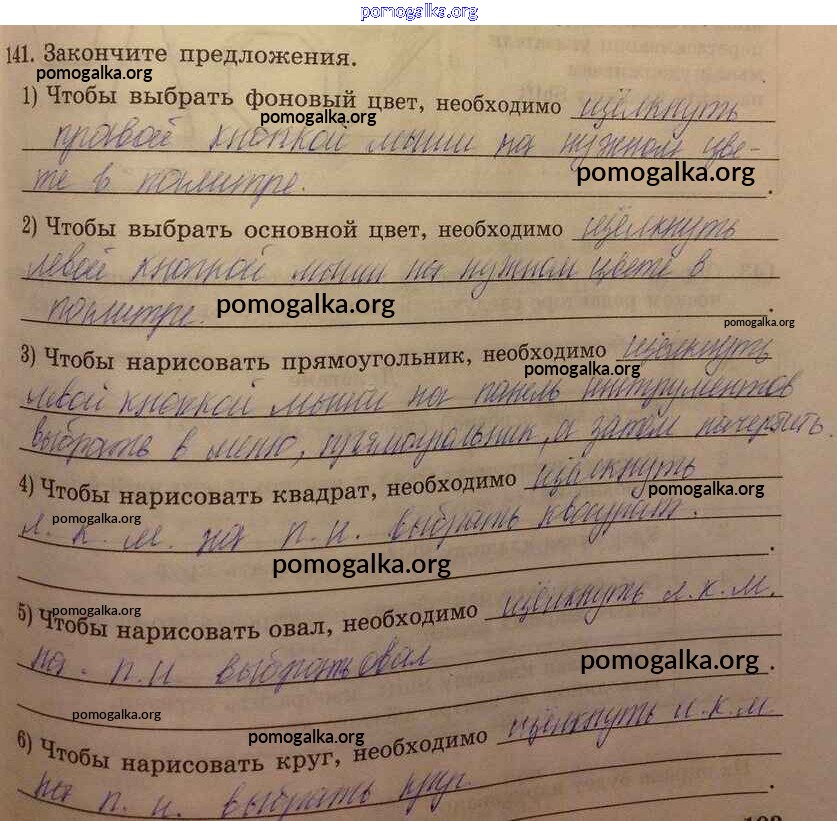 pomogalka.org
141. Закончите предложения.
pomogalka.org
1) Чтобы выбрать фоновый цвет, необходимо щёлкнуть
pomogalka.org
правой кнопкой мыши на нужном цве-
те в палитре.
pomogalka.org
2) Чтобы выбрать основной цвет, необходимо щёлкнуть
левой кнопкой мыши на нужном цвете в
палитре.
pomogalka.org
pomogalka.org
3) Чтобы нарисовать прямоугольник, необходимо щёлкнуть
pomogalka.org
левой кнопкой мыши на панель инструментов
выбрать в меню, прямоугольник, а затем начертить.
4) Чтобы нарисовать квадрат, необходимо щёлкнуть
pomogalka.org
л. к. м. на п. и. выбрать квадрат.
pomogalka.org
pomogalka.org
pomogalka.org
5) Чтобы нарисовать овал, необходимо щёлкнуть л.к.м.
на. п.и выбрать овал
pomogalka.org
pomogalka.org
6) Чтобы нарисовать круг, необходимо щёлкнуть л.к.м
pomogalka.org
на п. и. выбрать круг.